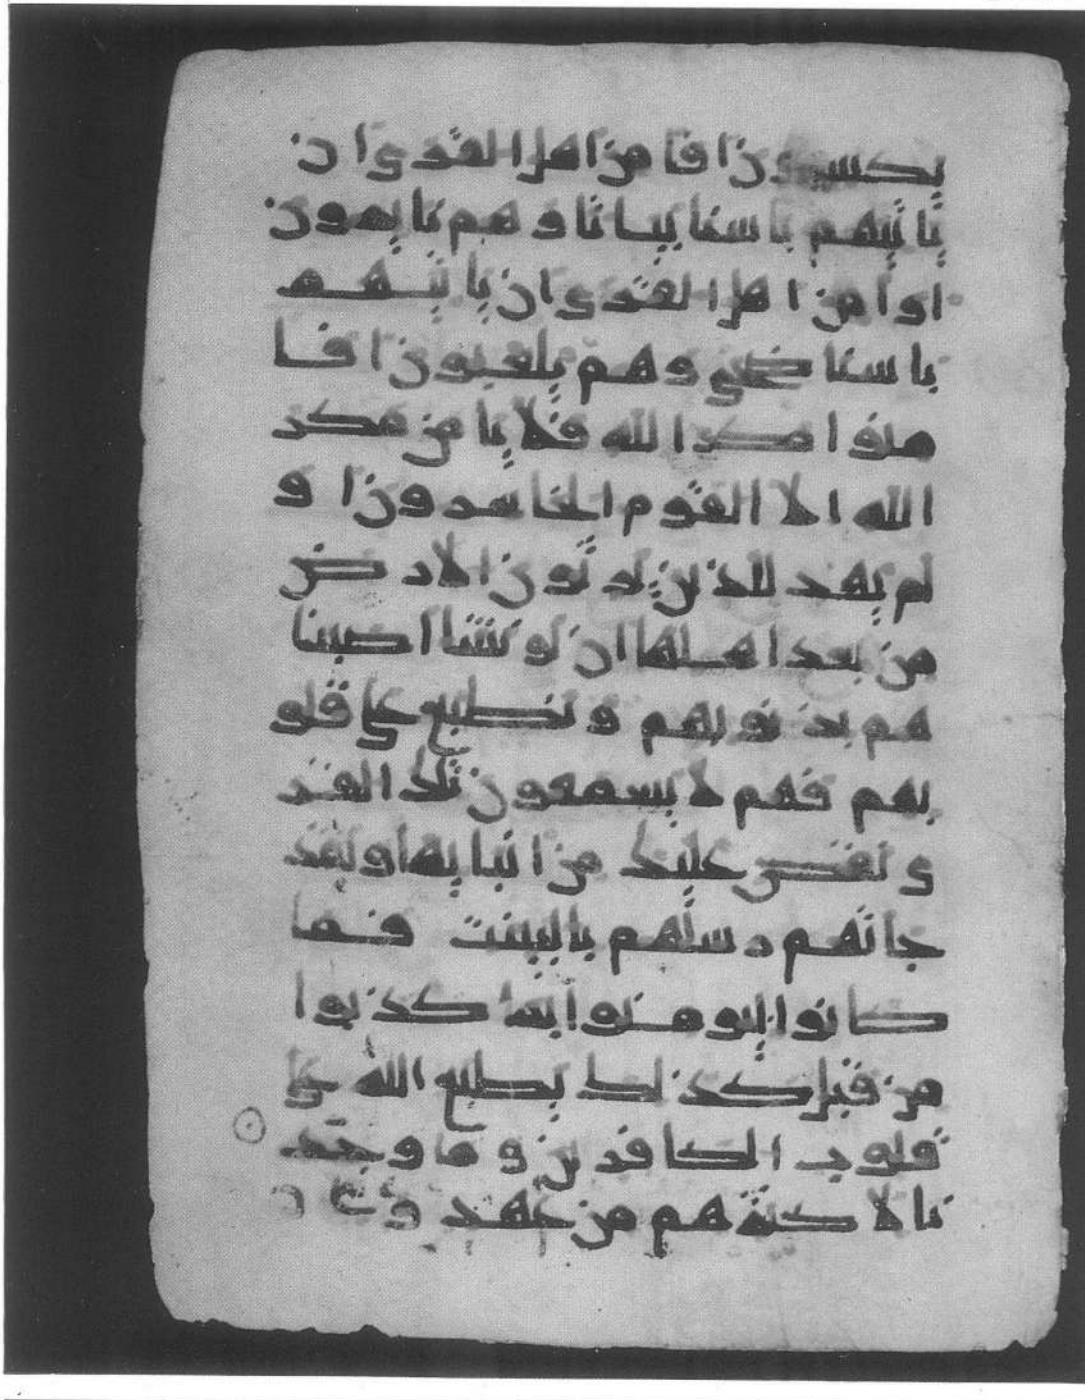 يكسبون افا من اهل القرى ان
ياتيهم باسنا بياتا وهم نايمون
اوا من اهل القرى ان ياتيهم
باسنا ضحى وهم يلعبون افا
منوا مكر الله فلا يا من مكر
الله الا القوم الخاسرون ا و
لم يهد للذين يرثون الارض
من بعد اهلها ان لو نشا اصبنا
هم بذنوبهم ونطبع على قلو
بهم فهم لا يسمعون تلك القر
ى نقص عليك من انبايها ولقد
جاتهم رسلهم بالبينت فما
كانوا ليومنوا بما كذبوا
من قبل كذلك يطبع الله على
قلوب الكافرين وما وجد
نا لا كثرهم من عهد و